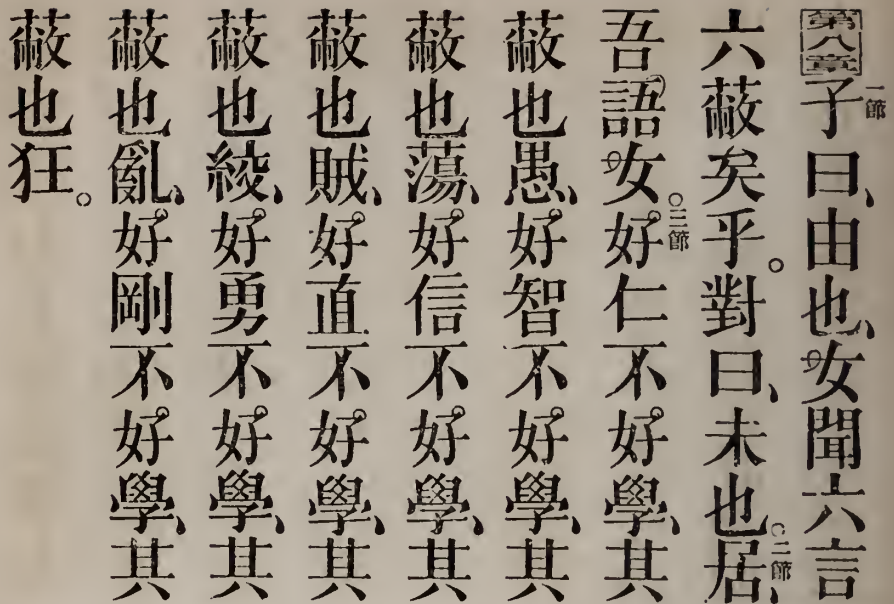 第八章 一節 子曰、由也、女聞六言
六蔽矣乎。對曰、未也。二節 居、
吾語女。三節 好仁不好學、其
蔽也愚、好智不好學、其
蔽也蕩、好信不好學、其
蔽也賊、好直不好學、其
蔽也絞、好勇不好學、其
蔽也亂、好剛不好學、其
蔽也狂。